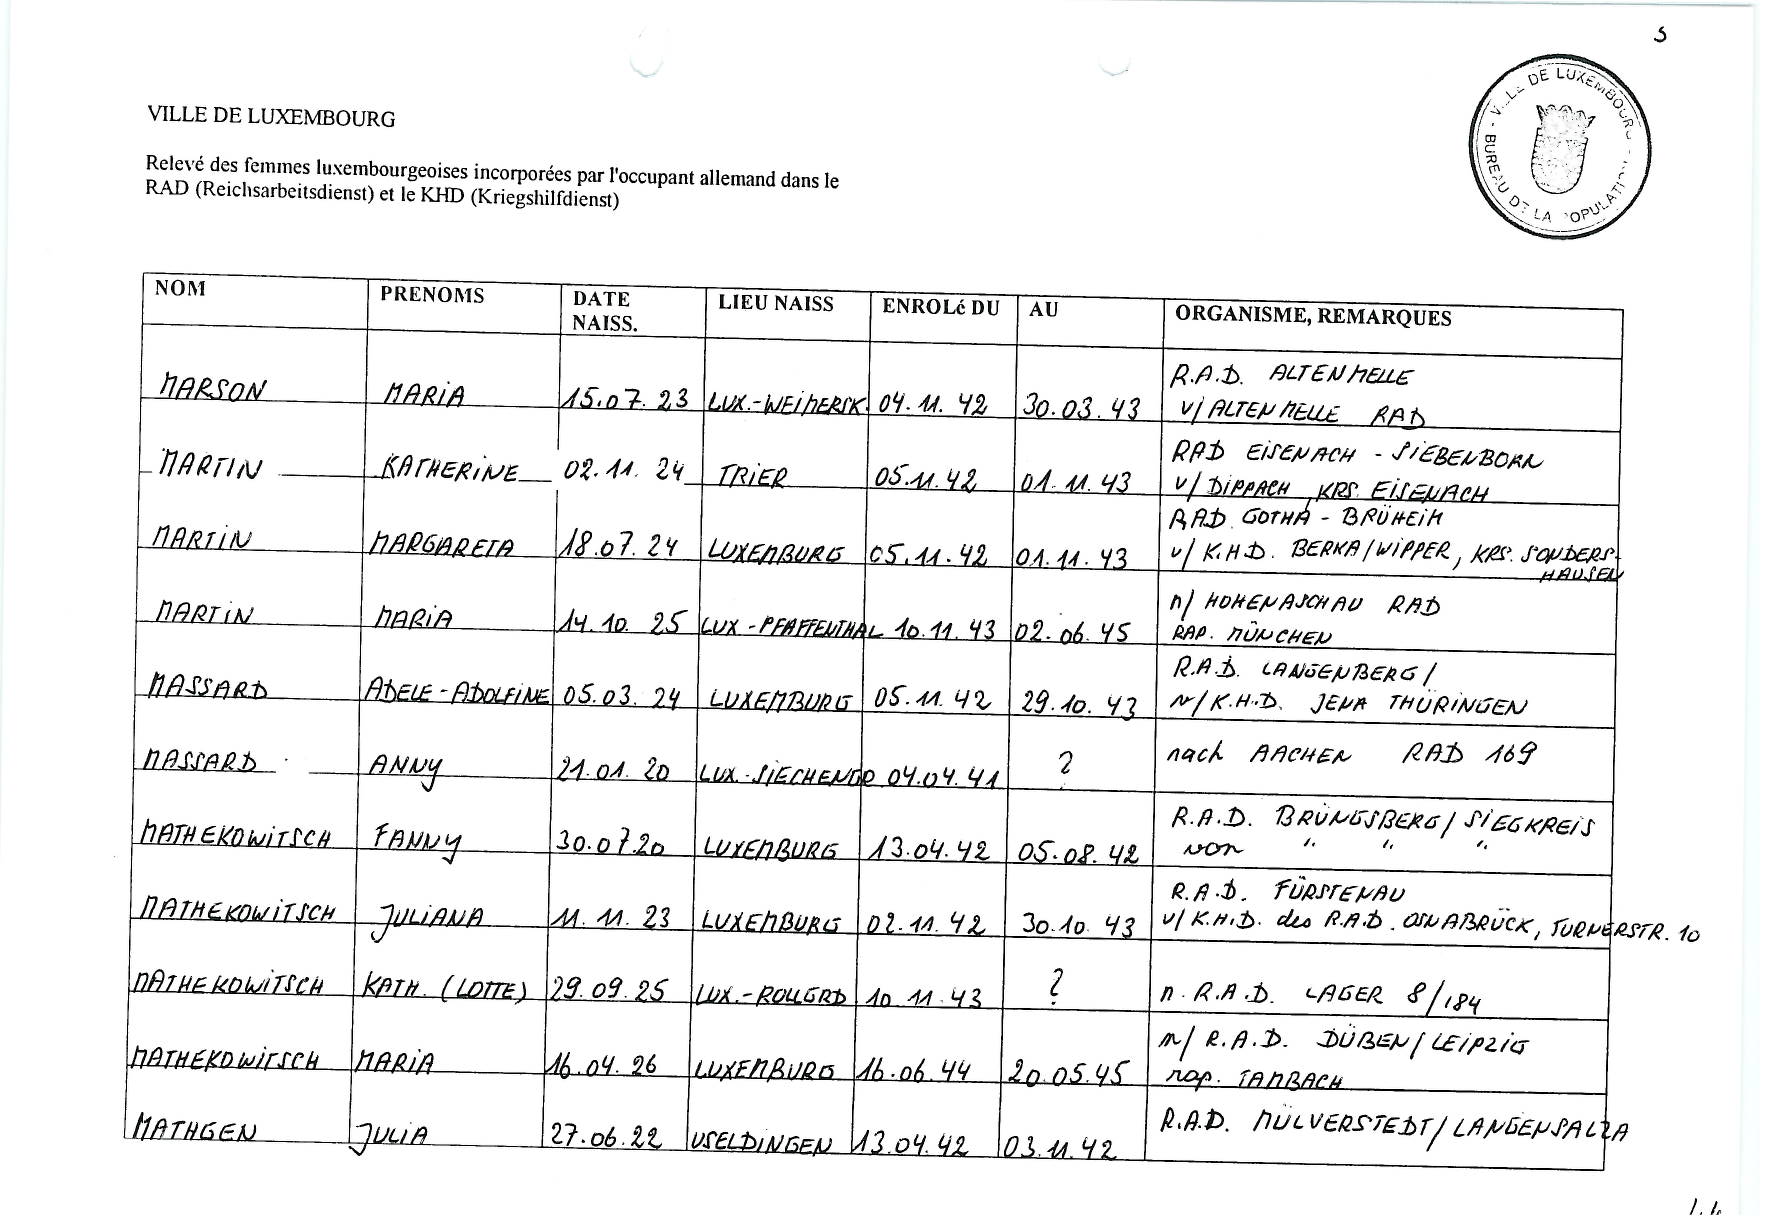 5
VILLE DE LUXEMBOURG
BUREAU DE LA POPULATION
VILLE DE LUXEMBOURG
Relevé des femmes luxembourgeoises incorporées par l'occupant allemand dans le
RAD (Reichsarbeitsdienst) et le KHD (Kriegshilfdienst)
NOM PRENOMS DATE NAISS. LIEU NAISS ENROLé DU AU ORGANISME, REMARQUES
MARSON MARIA 15.07.23 LUX.-WEIMERSK. 04.11.42 30.03.43 R.A.D. ALTENMELLE
v/ALTENMELLE RAD
MARTIN KATHERINE 02.11.24 TRIER 05.11.42 01.11.43 RAD EISENACH - SIEBENBORN
v/DIPPACH, KRS. EISENACH
MARTIN MARGARETA 18.07.24 LUXEMBURG 05.11.42 01.11.43 RAD GOTHA - BRÜHEIM
v/K.H.D. BERKA/WIPPER, KRS. SONDERS-
HAUSEN
MARTIN MARIA 14.10.25 LUX-PFAFFENTHAL 10.11.43 02.06.45 n/HOHENASCHAU RAD
RAP. MÜNCHEN
MASSARD ADELE-ADOLFINE 05.03.24 LUXEMBURG 05.11.42 29.10.43 R.A.D. LANGENBERG/
n/K.H.D. JENA THÜRINGEN
MASSARD ANNY 21.01.20 LUX.-SIECHENGR 04.04.41 ? nach AACHEN RAD 169
MATHEKOWITSCH FANNY 30.07.20 LUXEMBURG 13.04.42 05.08.42 R.A.D. BRÜNGSBERG/SIEGKREIS
von " " "
MATHEKOWITSCH JULIANA 11.11.23 LUXEMBURG 02.11.42 30.10.43 R.A.D. FÜRSTENAU
v/K.H.D. des R.A.D. OSNABRÜCK, TURNERSTR. 10
MATHEKOWITSCH KATH. (LOTTE) 29.09.25 LUX.-ROLLGRD 10 11.43 ? n. R.A.D. LAGER 8/184
MATHEKOWITSCH MARIA 16.04.26 LUXEMBURG 16.06.44 20.05.45 n/R.A.D. DÜBEN/LEIPZIG
rap. TAMBACH
MATHGEN JULIA 27.06.22 USELDINGEN 13.04.42 03.11.42 R.A.D. MÜLVERSTEDT/LANGENSALZA